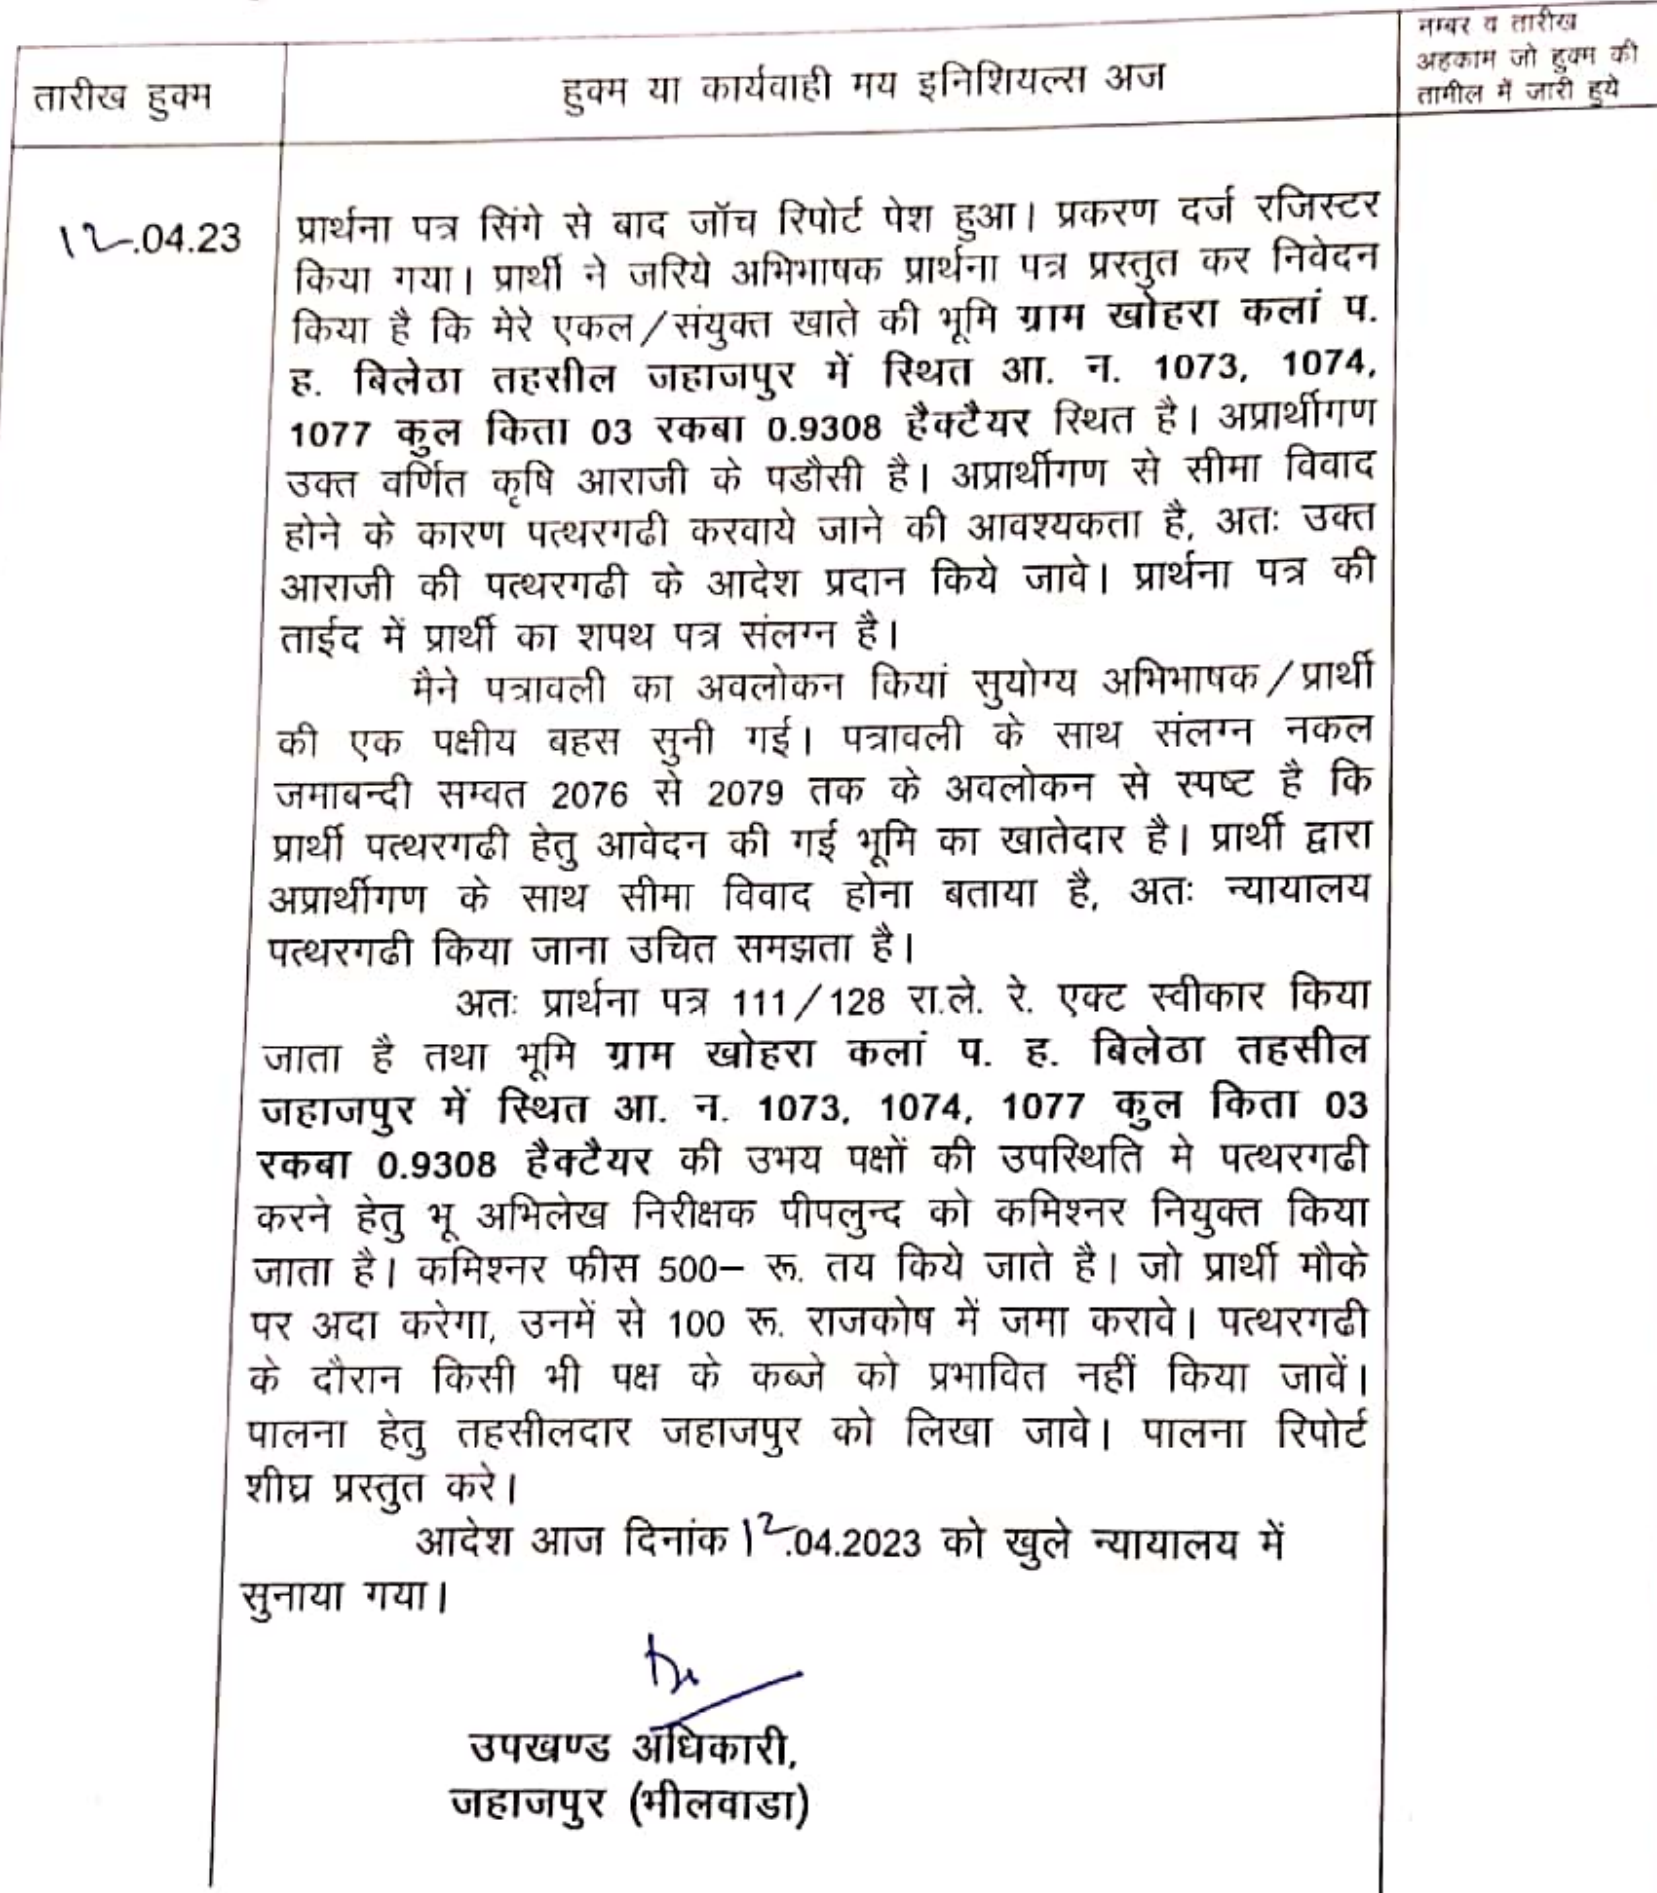 नम्बर व तारीख
अहकाम जो हुक्म की
तामील में जारी हुये
तारीख हुक्म
हुक्म या कार्यवाही मय इनिशियल्स अज
12.04.23
प्रार्थना पत्र सिंगे से बाद जॉच रिपोर्ट पेश हुआ। प्रकरण दर्ज रजिस्टर
किया गया। प्रार्थी ने जरिये अभिभाषक प्रार्थना पत्र प्रस्तुत कर निवेदन
किया है कि मेरे एकल/संयुक्त खाते की भूमि ग्राम खोहरा कलां प.
ह. बिलेठा तहसील जहाजपुर में स्थित आ. न. 1073, 1074,
1077 कुल किता 03 रकबा 0.9308 हैक्टैयर स्थित है। अप्रार्थीगण
उक्त वर्णित कृषि आराजी के पडौसी है। अप्रार्थीगण से सीमा विवाद
होने के कारण पत्थरगढी करवाये जाने की आवश्यकता है, अतः उक्त
आराजी की पत्थरगढी के आदेश प्रदान किये जावे। प्रार्थना पत्र की
ताईद में प्रार्थी का शपथ पत्र संलग्न है।
मैने पत्रावली का अवलोकन कियां सुयोग्य अभिभाषक/प्रार्थी
की एक पक्षीय बहस सुनी गई। पत्रावली के साथ संलग्न नकल
जमाबन्दी सम्वत 2076 से 2079 तक के अवलोकन से स्पष्ट है कि
प्रार्थी पत्थरगढी हेतु आवेदन की गई भूमि का खातेदार है। प्रार्थी द्वारा
अप्रार्थीगण के साथ सीमा विवाद होना बताया है, अतः न्यायालय
पत्थरगढी किया जाना उचित समझता है।
अतः प्रार्थना पत्र 111/128 रा.ले. रे. एक्ट स्वीकार किया
जाता है तथा भूमि ग्राम खोहरा कलां प. ह. बिलेठा तहसील
जहाजपुर में स्थित आ. न. 1073, 1074, 1077 कुल किता 03
रकबा 0.9308 हैक्टैयर की उभय पक्षों की उपस्थिति मे पत्थरगढी
करने हेतु भू अभिलेख निरीक्षक पीपलुन्द को कमिश्नर नियुक्त किया
जाता है। कमिश्नर फीस 500– रू. तय किये जाते है। जो प्रार्थी मौके
पर अदा करेगा, उनमें से 100 रू. राजकोष में जमा करावे। पत्थरगढी
के दौरान किसी भी पक्ष के कब्जे को प्रभावित नहीं किया जावें।
पालना हेतु तहसीलदार जहाजपुर को लिखा जावे। पालना रिपोर्ट
शीघ्र प्रस्तुत करे।
आदेश आज दिनांक 12.04.2023 को खुले न्यायालय में
सुनाया गया।
उपखण्ड अधिकारी,
जहाजपुर (भीलवाडा)